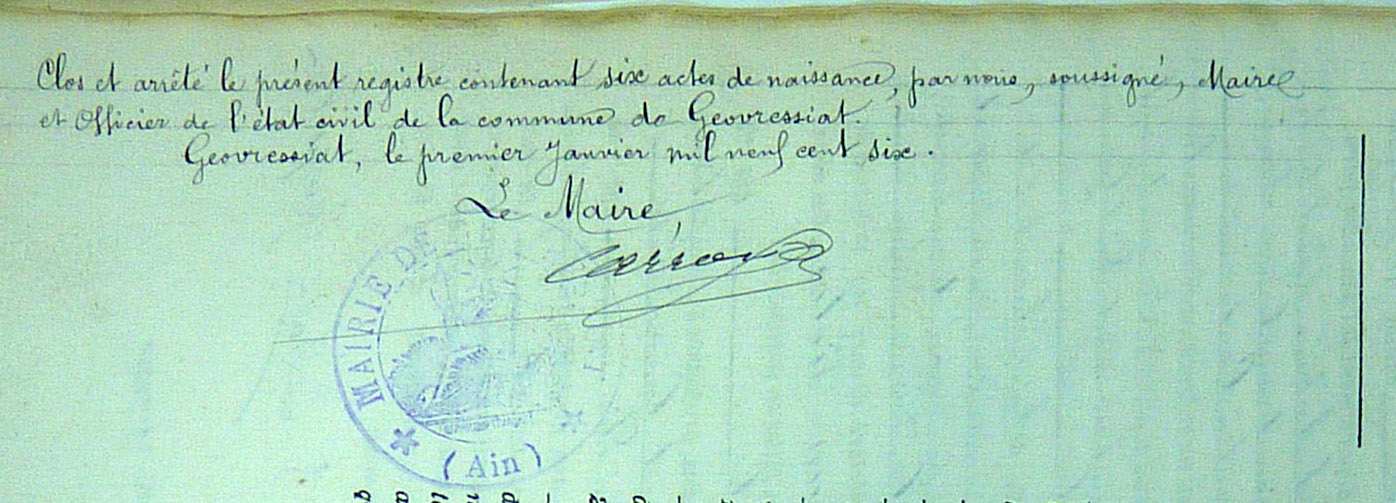 Clos et arrêté le présent registre contenant six actes de naissance, par nous, soussigné, Maire
et Officier de l'état civil de la commune de Geovressiat.
Geovressiat, le premier Janvier mil neuf cent six.
Le Maire,
MAIRIE DE
(Ain)